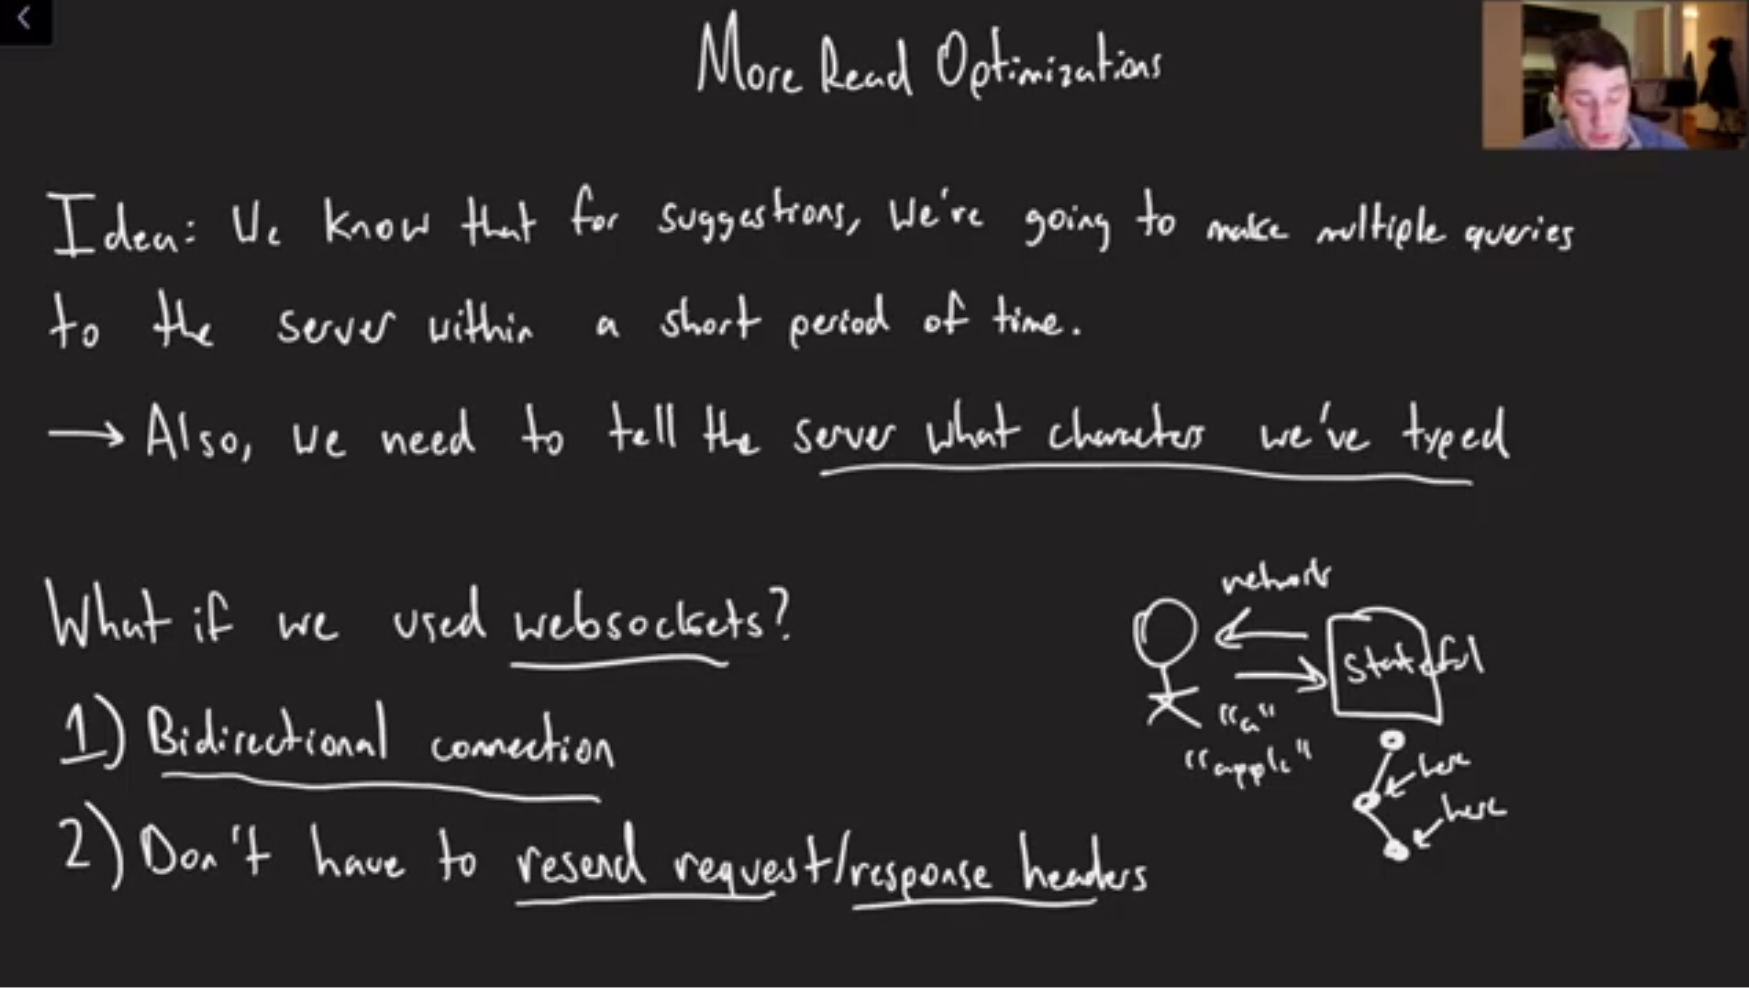 More Read Optimizations
Idea: We know that for suggestions, we're going to make multiple queries
to the server within a short period of time.
→ Also, we need to tell the server what characters we've typed
What if we used websockets?
1) Bidirectional connection
2) Don't have to resend request/response headers
network
Stateful
"a"
"apple"
here
here